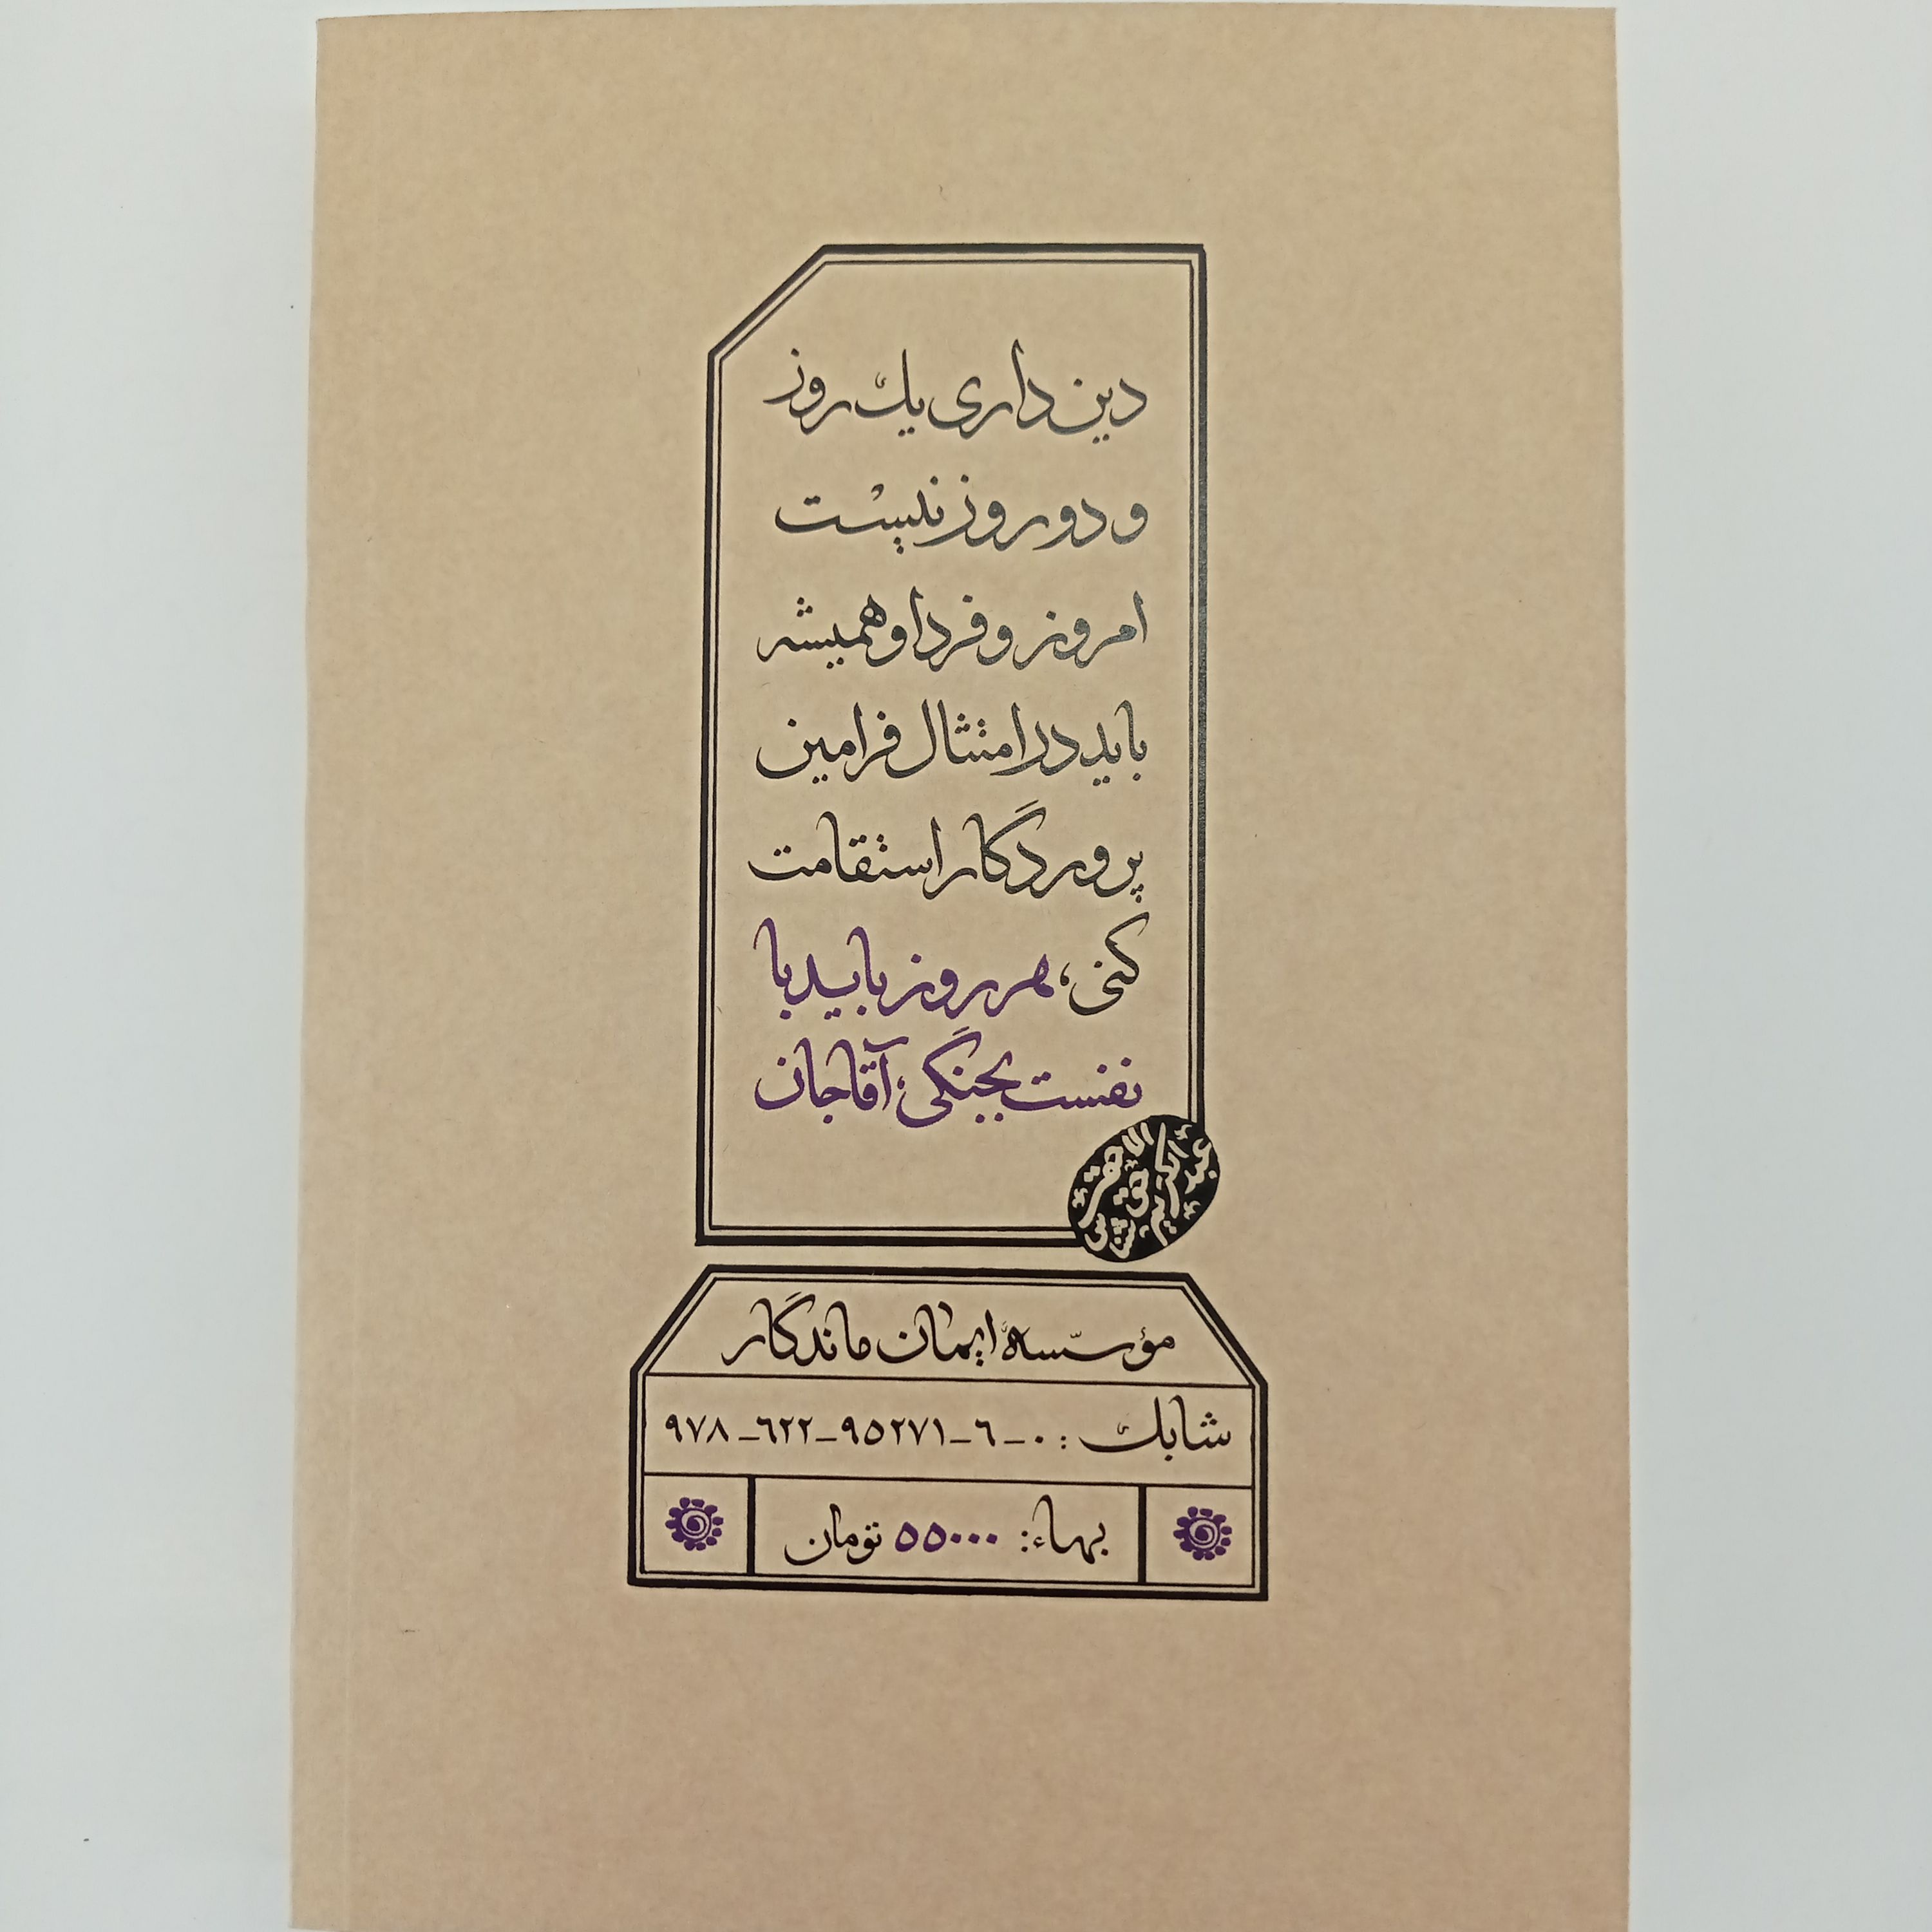 دین داری یك روز
و دو روز نیست
امروز و فردا و همیشه
باید در امتثال فرامین
پروردگار استقامت
کنی، هر روز باید با
نفست بجنگی، آقاجان
الاحقر
عبدالکریم حق شناس
مؤسّسهٔ ایمان ماندگار
شابك : ۰-۶-۹۵۲۷۱-۶۲۲-۹۷۸
بهاء: ۵۵۰۰۰ تومان